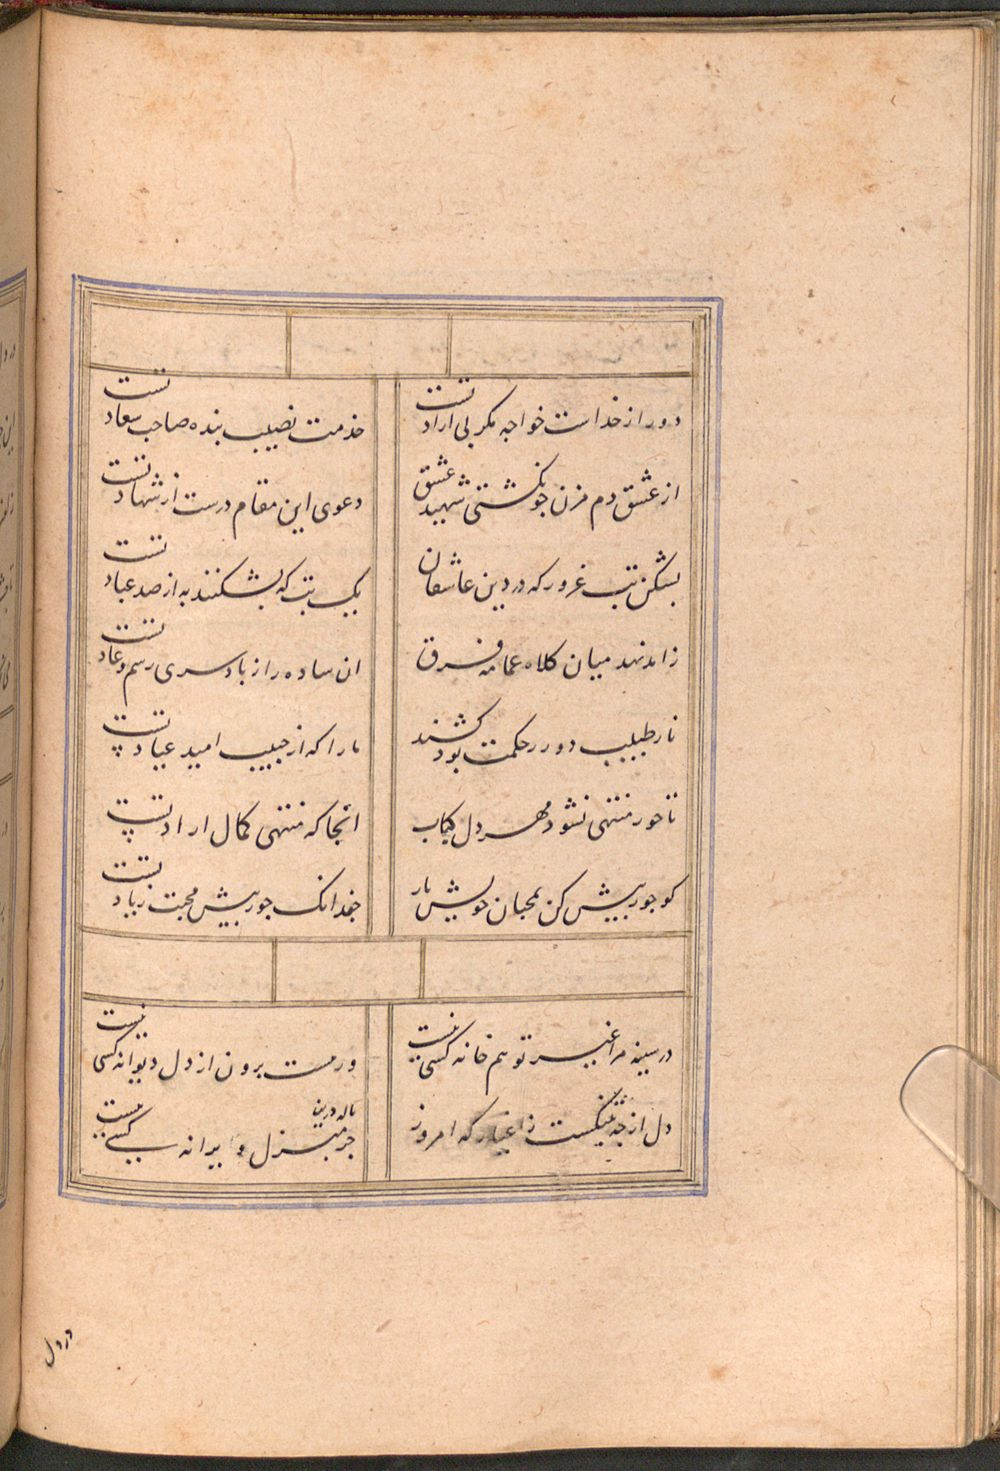 دور از خداست خواجه مگر بی ارادتست
خدمت نصیب بنده صاحب سعادتست
از عشق دم مزن چو نگشتی شهید عشق
دعوی این مقام درست از شهادتست
بشکن بت غرور که در دین عاشقان
یک بت که بشکنند به از صد عبادتست
زاهد نهد میان کلاه عمامه فرق
ان ساده را ز باد سری رسم و عادتست
ناز طبیب دور ز حکمت بود کشند
ما را که از حبیب امید عیادتست
تا جور منتهی نشود مهر دل کجاب
انجا که منتهی کمال ارادتست
کو جور بیش کن بمحبان خویش یار
چندانک جور بیش محبت زیادتست
در سینه مرا غیر تو هم خانه کسی نیست
ور هست برون از دل دیوانه کسی نیست
دل از چه شکست ز اغیار که امروز
جز ناله درین منزل ویرانه کسی نیست
در دل